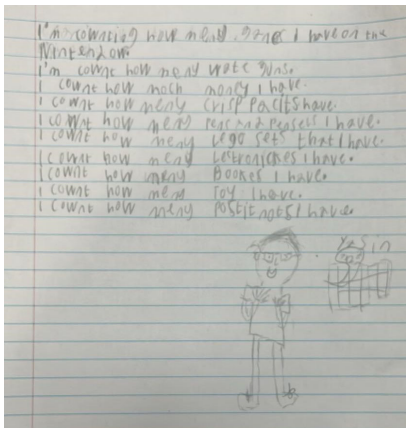 I'm cownting how meny games I have on the
Nintendow.
I'm cownt how meny wate guns.
I cownt how moch money I have.
I cownt how meny crisp pacits have.
I cownt how meny pens and pensels I have.
I cownt how meny Lego sets that I have.
I cownt how meny Lectronickes I have.
I cownt how meny Bookes I have.
I cownt how meny toy I have.
I cownt how meny postit nots I have.
Yasin